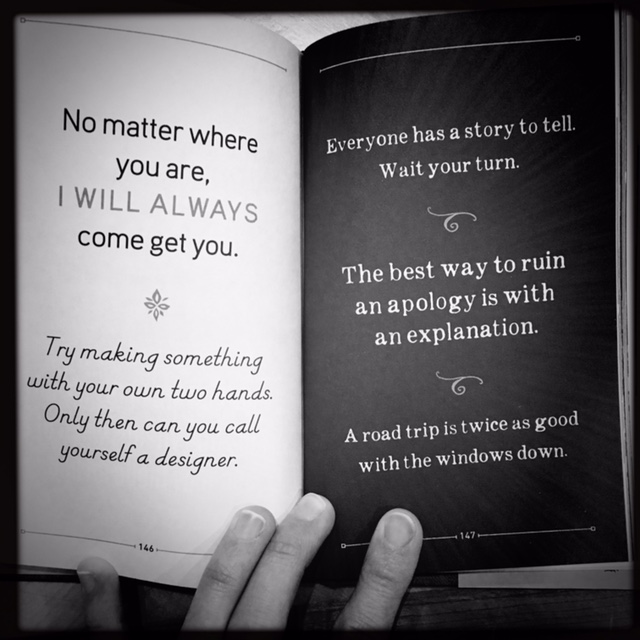 No matter where
you are,
I WILL ALWAYS
come get you.
Try making something
with your own two hands.
Only then can you call
yourself a designer.
146
Everyone has a story to tell.
Wait your turn.
The best way to ruin
an apology is with
an explanation.
A road trip is twice as good
with the windows down.
147